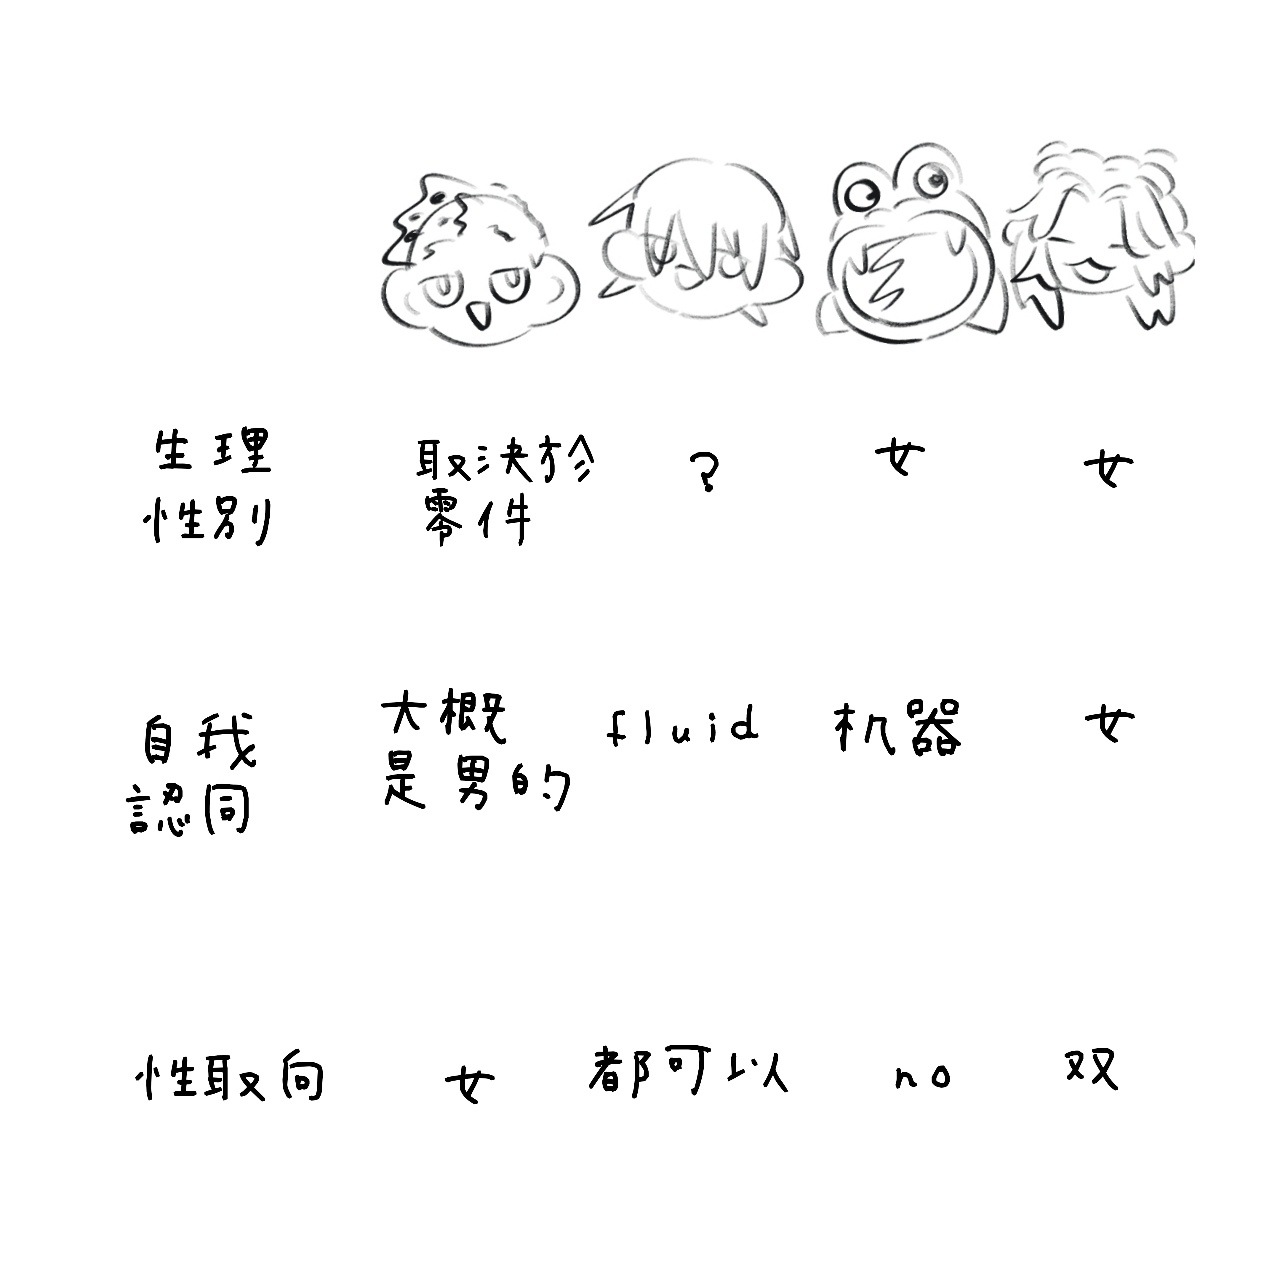 生理
性別
取決於
零件
?
女
女
自我
認同
大概
是男的
fluid
机器
女
性取向
女
都可以
no
双